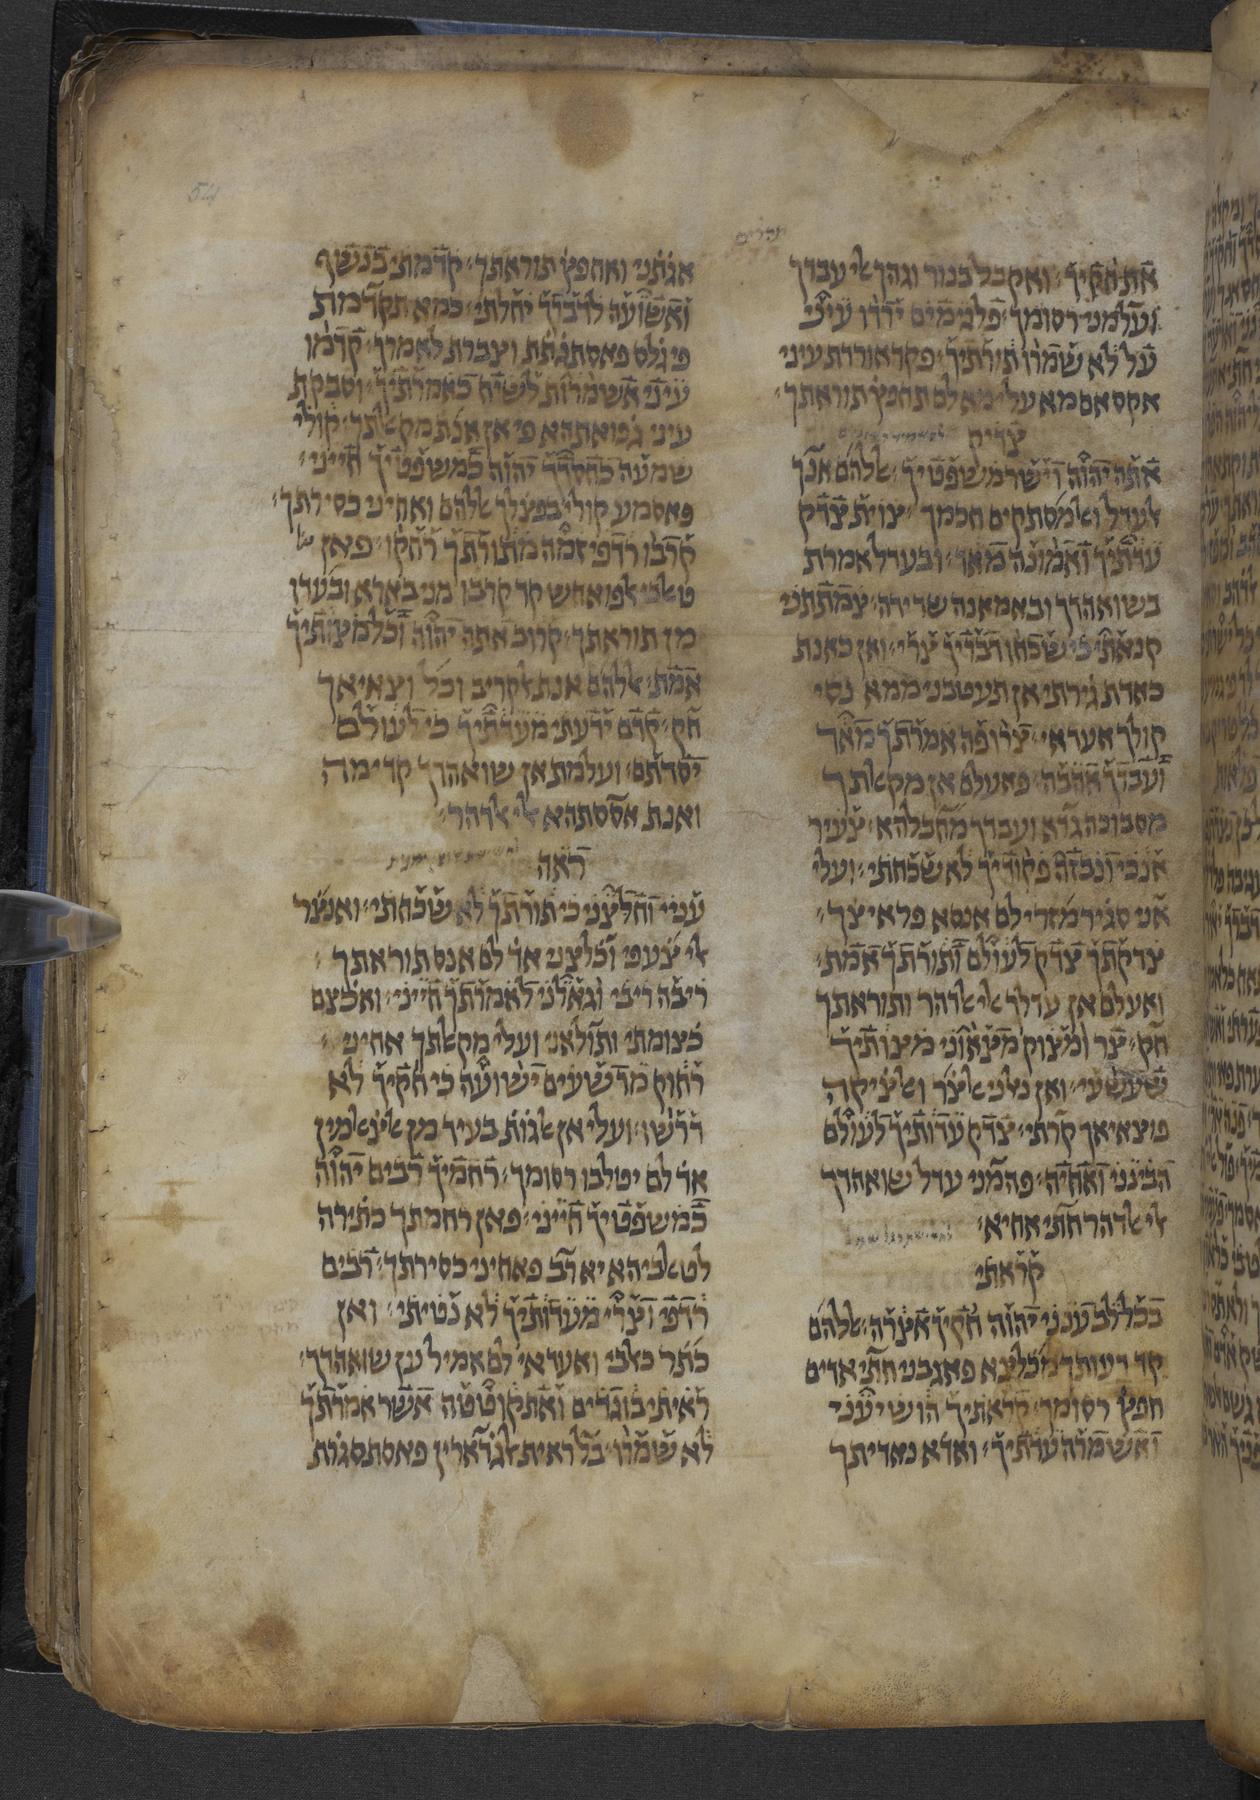 תהלים
את חקיך ואקבל בנור וגהך אלי עבדך
ועלמני רסומך פלגי מים ירדו עיני
על לא שמרו תורתך פקד אוררת עיני
אקסאם מא עלי מא לם תחפץ תוראתך
צדיק
אתה יהוה וישר משפטיך אללהם אנך
אלעדל ואלמסתקים חכמך צוית צדק
עדתיך ואמונה מאד ובעדל אמרת
בשואהדך ובאמאנה שדידה צמתתני
קנאתי כי שכחו דבריך צרי ואן כאנת
כאדת גירתי אן תעטבני ממא נסי
קולך אעדאי צרופה אמרתך מאד
ועבדך אהבה פאעלם אן מקאלתך
מסבוכה גדא ועבדך מחבלהא צעיר
אנכי ונבזה פקודיך לא שכחתי ועלי
אני סגיר מזדי לם אנסא פראיצך
צדקתך צדק לעולם ותורתך אמת
ואעלם אן עדלך אלי אלדהר ותוראתך
חק צר ומצוק מצאוני מצותיך
שעשעי ואן נאלני אלצר ואלציקה
פוצאיאך קרתי צדק עדותיך לעולם
הבינני ואחיה פהמני עדל שואהדך
אלי אלדהר חתי אחיא
קראתי
בכל לב ענני יהוה חקיך אצרה אללהם
קד דעותך מכלצא פאגבני חתי אדים
חפץ רסומך קראתיך הושיעני
ואשמרה עדתיך ואדא נאדיתך
אגתני ואחפץ תוראתך קדמתי בנשף
ואשועה לדברך יחלתי כמא תקדמת
פי גלס פאסתגתת וצברת לאמרך קדמו
עיני אשמרות לשיח באמרתיך וסבקת
עיני גפואתהא פי אן אנת מקאלתך קולי
שמעה כחסדך יהוה כמשפטיך חייני
פאסמע קולי בפצלך אללהם ואחיני כסירתך
קרבו רדפי זמה מתורתך רחקו פאן
טאלבי אלפואחש קד קרבו מני באדא ובעדו
מן תוראתך קרוב אתה יהוה וכל מצותיך
אמת אללהם אנת אלקריב וכל וצאיאך
חק קדם ידעתי מעדתיך כי לעולם
יסדתם ועלמת אן שואהדך קדימה
ואנת אססתהא אלי אלדהר
ראה
עניי וחלצני כי תורתך לא שכחתי ואנצר
אלי צעפי וכלצני אד לם אנס תוראתך
ריבה ריבי וגאלני לאמרתך חייני ואכצם
כצומתי ותולאני ועלי מקאלתך אחיני
רחוק מרשעים ישועה כי חקיך לא
דרשו ועלי אן אלגות בעיד מן אלצאלמין
אד לם יטלבו רסומך רחמיך רבים יהוה
כמשפטיך חייני פאן רחמתך כתירה
לטאלביהא יא רב פאחיני כסירתך רבים
רדפי וצרי מעדותיך לא נטיתי ואן
כתר כאלבי ואעדאי לם אמיל ען שואהדך
ראיתי בוגדים ואתקוטטה אשר אמרתך
לא שמרו בל ראית אלגדארין פאסתסגות